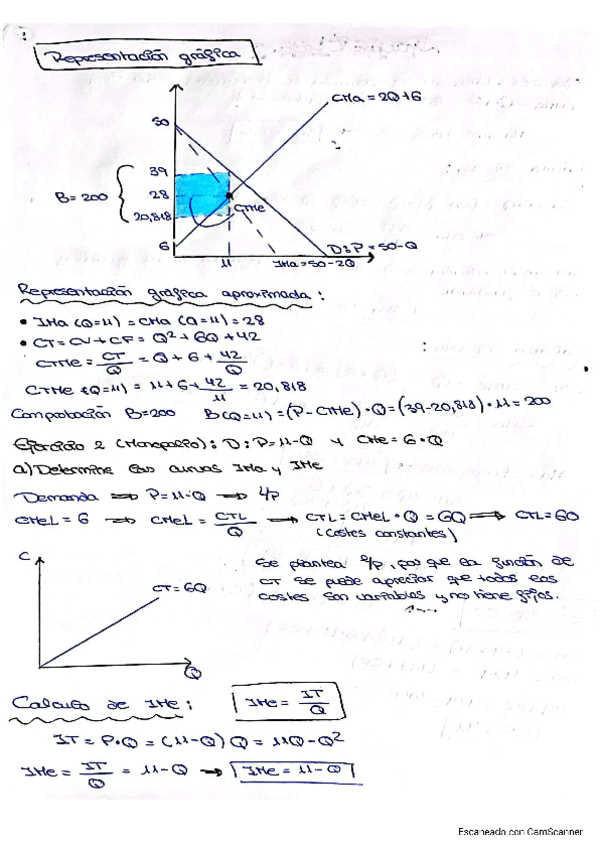 Representación gráfica
CMa = 2Q+6
50
39
B=200
28
CTMe
20,818
6
D: P = 50-Q
11
IMa = 50-2Q
Representación gráfica aproximada:
• IMa (Q=11) = CMa (Q=11) = 28
• CT = CV + CF = Q² + 6Q + 42
CTMe = CT/Q = Q + 6 + 42/Q
CTMe (Q=11) = 11 + 6 + 42/11 = 20,818
Comprobación B=200 B(Q=11) = (P-CTMe)·Q = (39-20,818)·11 = 200
Ejercicio 2 (Monopolio): D: P=11-Q y CMe = 6·Q
a) Determine las curvas IMa y IMe
Demanda ⟹ P=11-Q ⟶ L/P
CMeL = 6 ⟹ CMeL = CTL/Q ⟶ CTL = CMeL·Q = 6Q ⟹ CTL = 6Q
(Costes constantes)
C
CT = 6Q
Q
Se plantea L/p, pos que la función de
CT se puede apreciar que todos los
costes son variables y no tiene fijos.
Calculo de IMe:
IMe = IT/Q
IT = P·Q = (11-Q)Q = 11Q-Q²
IMe = IT/Q = 11-Q ⟶ IMe = 11-Q
Escaneado con CamScanner